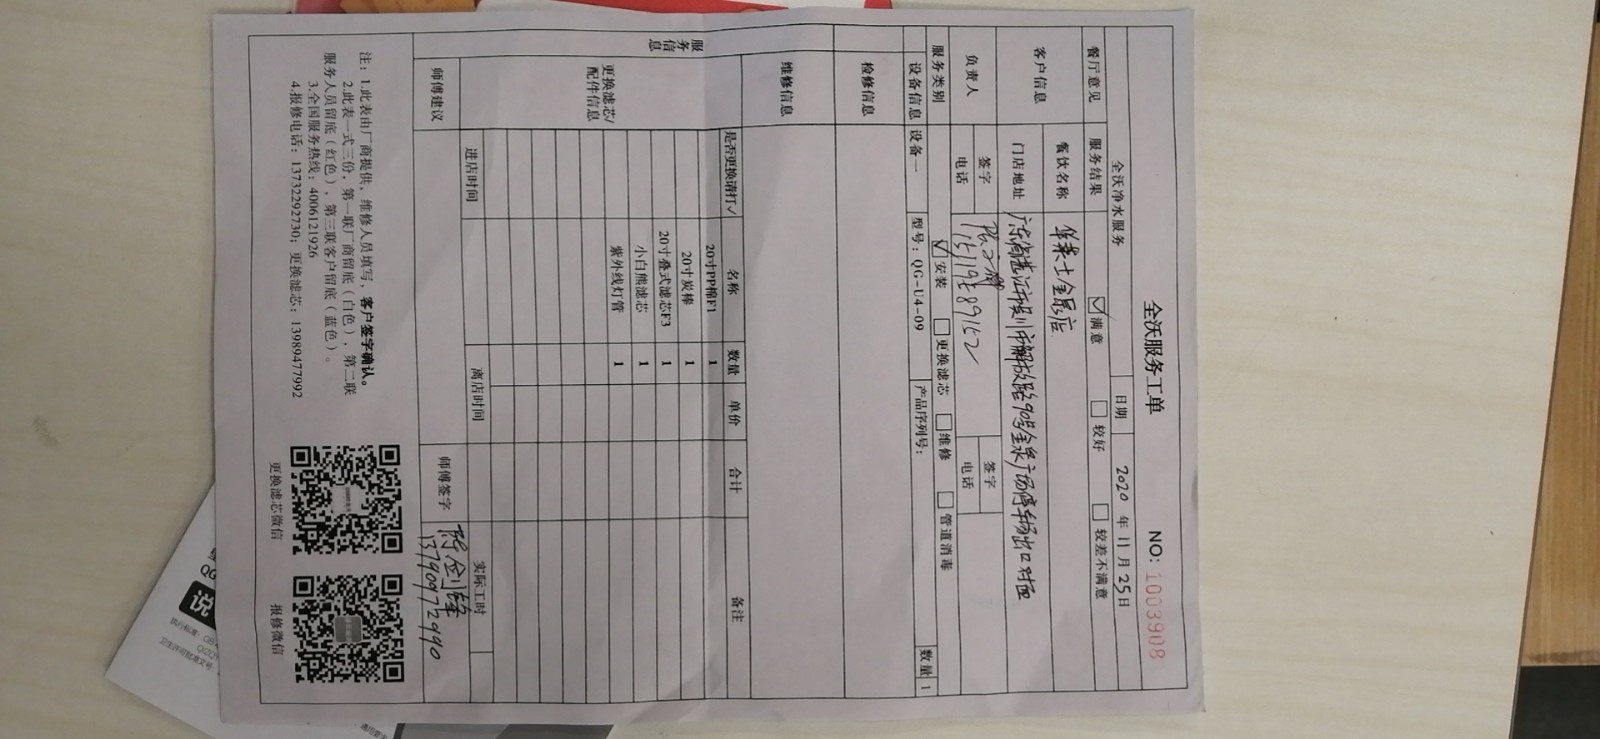 全沃服务工单 NO: 1003908
全沃净水服务 日期 2020 年 11 月 25 日
餐厅意见 服务结果 ☑ 满意 □ 较好 □ 较差不满意
客户信息 餐饮名称 华莱士金泉店
门店地址 广东省湛江市吴川市解放路90号金泉广场停车场出口对面
负责人 签字 签字
电话 15119589152 电话
服务类别 ☑ 安装 □ 更换滤芯 □ 维修 □ 管道消毒
设备信息 设备一 型号: QG-U4-09 产品序列号: 数量 1
检修信息
维修信息
服务信息
更换滤芯/配件信息
是否更换请打√ 名称 数量 单价 合计 备注
20寸PP棉F1 1
20寸炭棒 1
20寸叠式滤芯F3 1
小白熊滤芯 1
紫外线灯管 1
进店时间 离店时间 实际工时
师傅建议 师傅签字 陈剑锋
13790972990
注: 1.此表由厂商提供, 维修人员填写, 客户签字确认。
2.此表一式三份, 第一联厂商留底 (白色), 第二联
服务人员留底 (红色), 第三联客户留底 (蓝色)。
3.全国服务热线: 4006121926
4.报修电话: 13732292730; 更换滤芯: 13989477992
更换滤芯微信 报修微信
QG
说
执行标准:
卫生许可批准文号